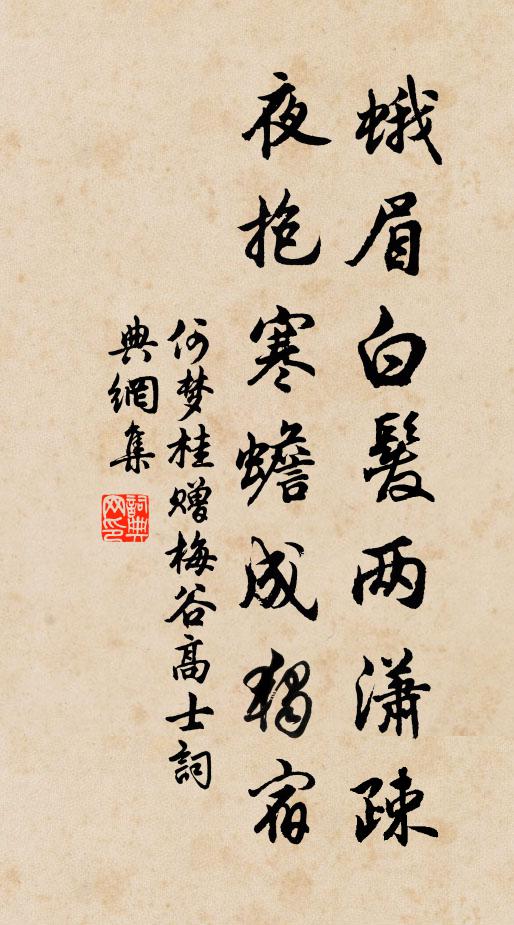 蛾眉白髮两瀟疎
夜抱寒蟾成獨宿
何梦桂赠梅谷高士詞
典網集
詞典网印